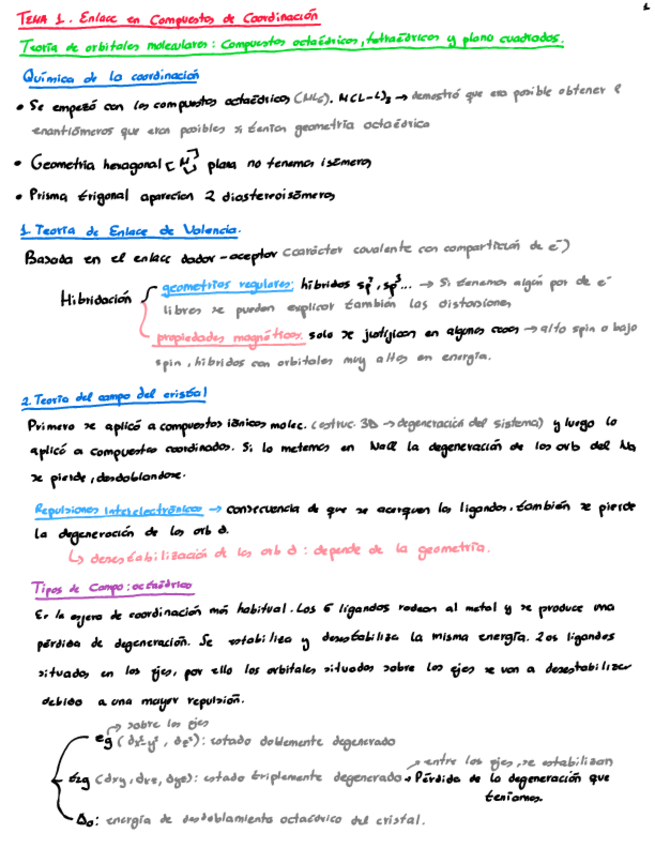 1
TEMA 1. Enlace en Compuestos de Coordinación
Teoría de orbitales moleculares: Compuestos octaédricos, tetraédricos y plano cuadrados.
Química de la coordinación
• Se empezó con los compuestos octaédricos (ML6). M(L-L)3 → demostró que era posible obtener
enantiómeros que eran posibles si tenían geometría octaédrica
• Geometría hexagonal [M] plana no tenemos isómeros
• Prisma trigonal aparecían 2 diastereoisómeros
1. Teoría de Enlace de Valencia.
Basada en el enlace dador-aceptor (carácter covalente con compartición de e-)
Hibridación
geometrías regulares: híbridos sp², sp³... → Si tenemos algún par de e-
libres se pueden explicar también las distorsiones
propiedades magnéticas. solo se justifican en algunos casos → alto spin o bajo
spin, híbridos con orbitales muy altos en energía.
2. Teoría del campo del cristal
Primero se aplicó a compuestos iónicos molec. (estruc. 3D → degeneración del sistema) y luego lo
aplicó a compuestos coordinados. Si lo metemos en NaCl la degeneración de los orb del Na
se pierde, desdoblandose.
Repulsiones Interelectrónicas → consecuencia de que se acerquen los ligandos. también se pierde
la degeneración de los orb d.
↳ desestabilización de los orb d: depende de la geometría.
Tipos de Campo: octaédrico
Es la esfera de coordinación más habitual. Los 6 ligandos rodean al metal y se produce una
pérdida de degeneración. Se estabiliza y desestabiliza la misma energía. Los ligandos
situados en los ejes, por ello los orbitales situados sobre los ejes se van a desestabilizar
debido a una mayor repulsión.
→ sobre los ejes
eg (dx²-y², dz²): estado doblemente degenerado
→ entre los ejes, se estabilizan
t2g (dxy, dxz, dyz): estado triplemente degenerado → Pérdida de la degeneración que
teníamos.
Δo: energía de desdoblamiento octaédrico del cristal.